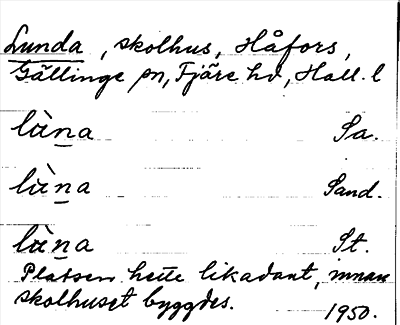 Lunda, skolhus, Håfors,
Gällinge sn, Fjäre hd, Hall. l
lùna Sa.
lùna Sand.
lùna St.
Platsen hette likadant, innan
skolhuset byggdes. 1950.